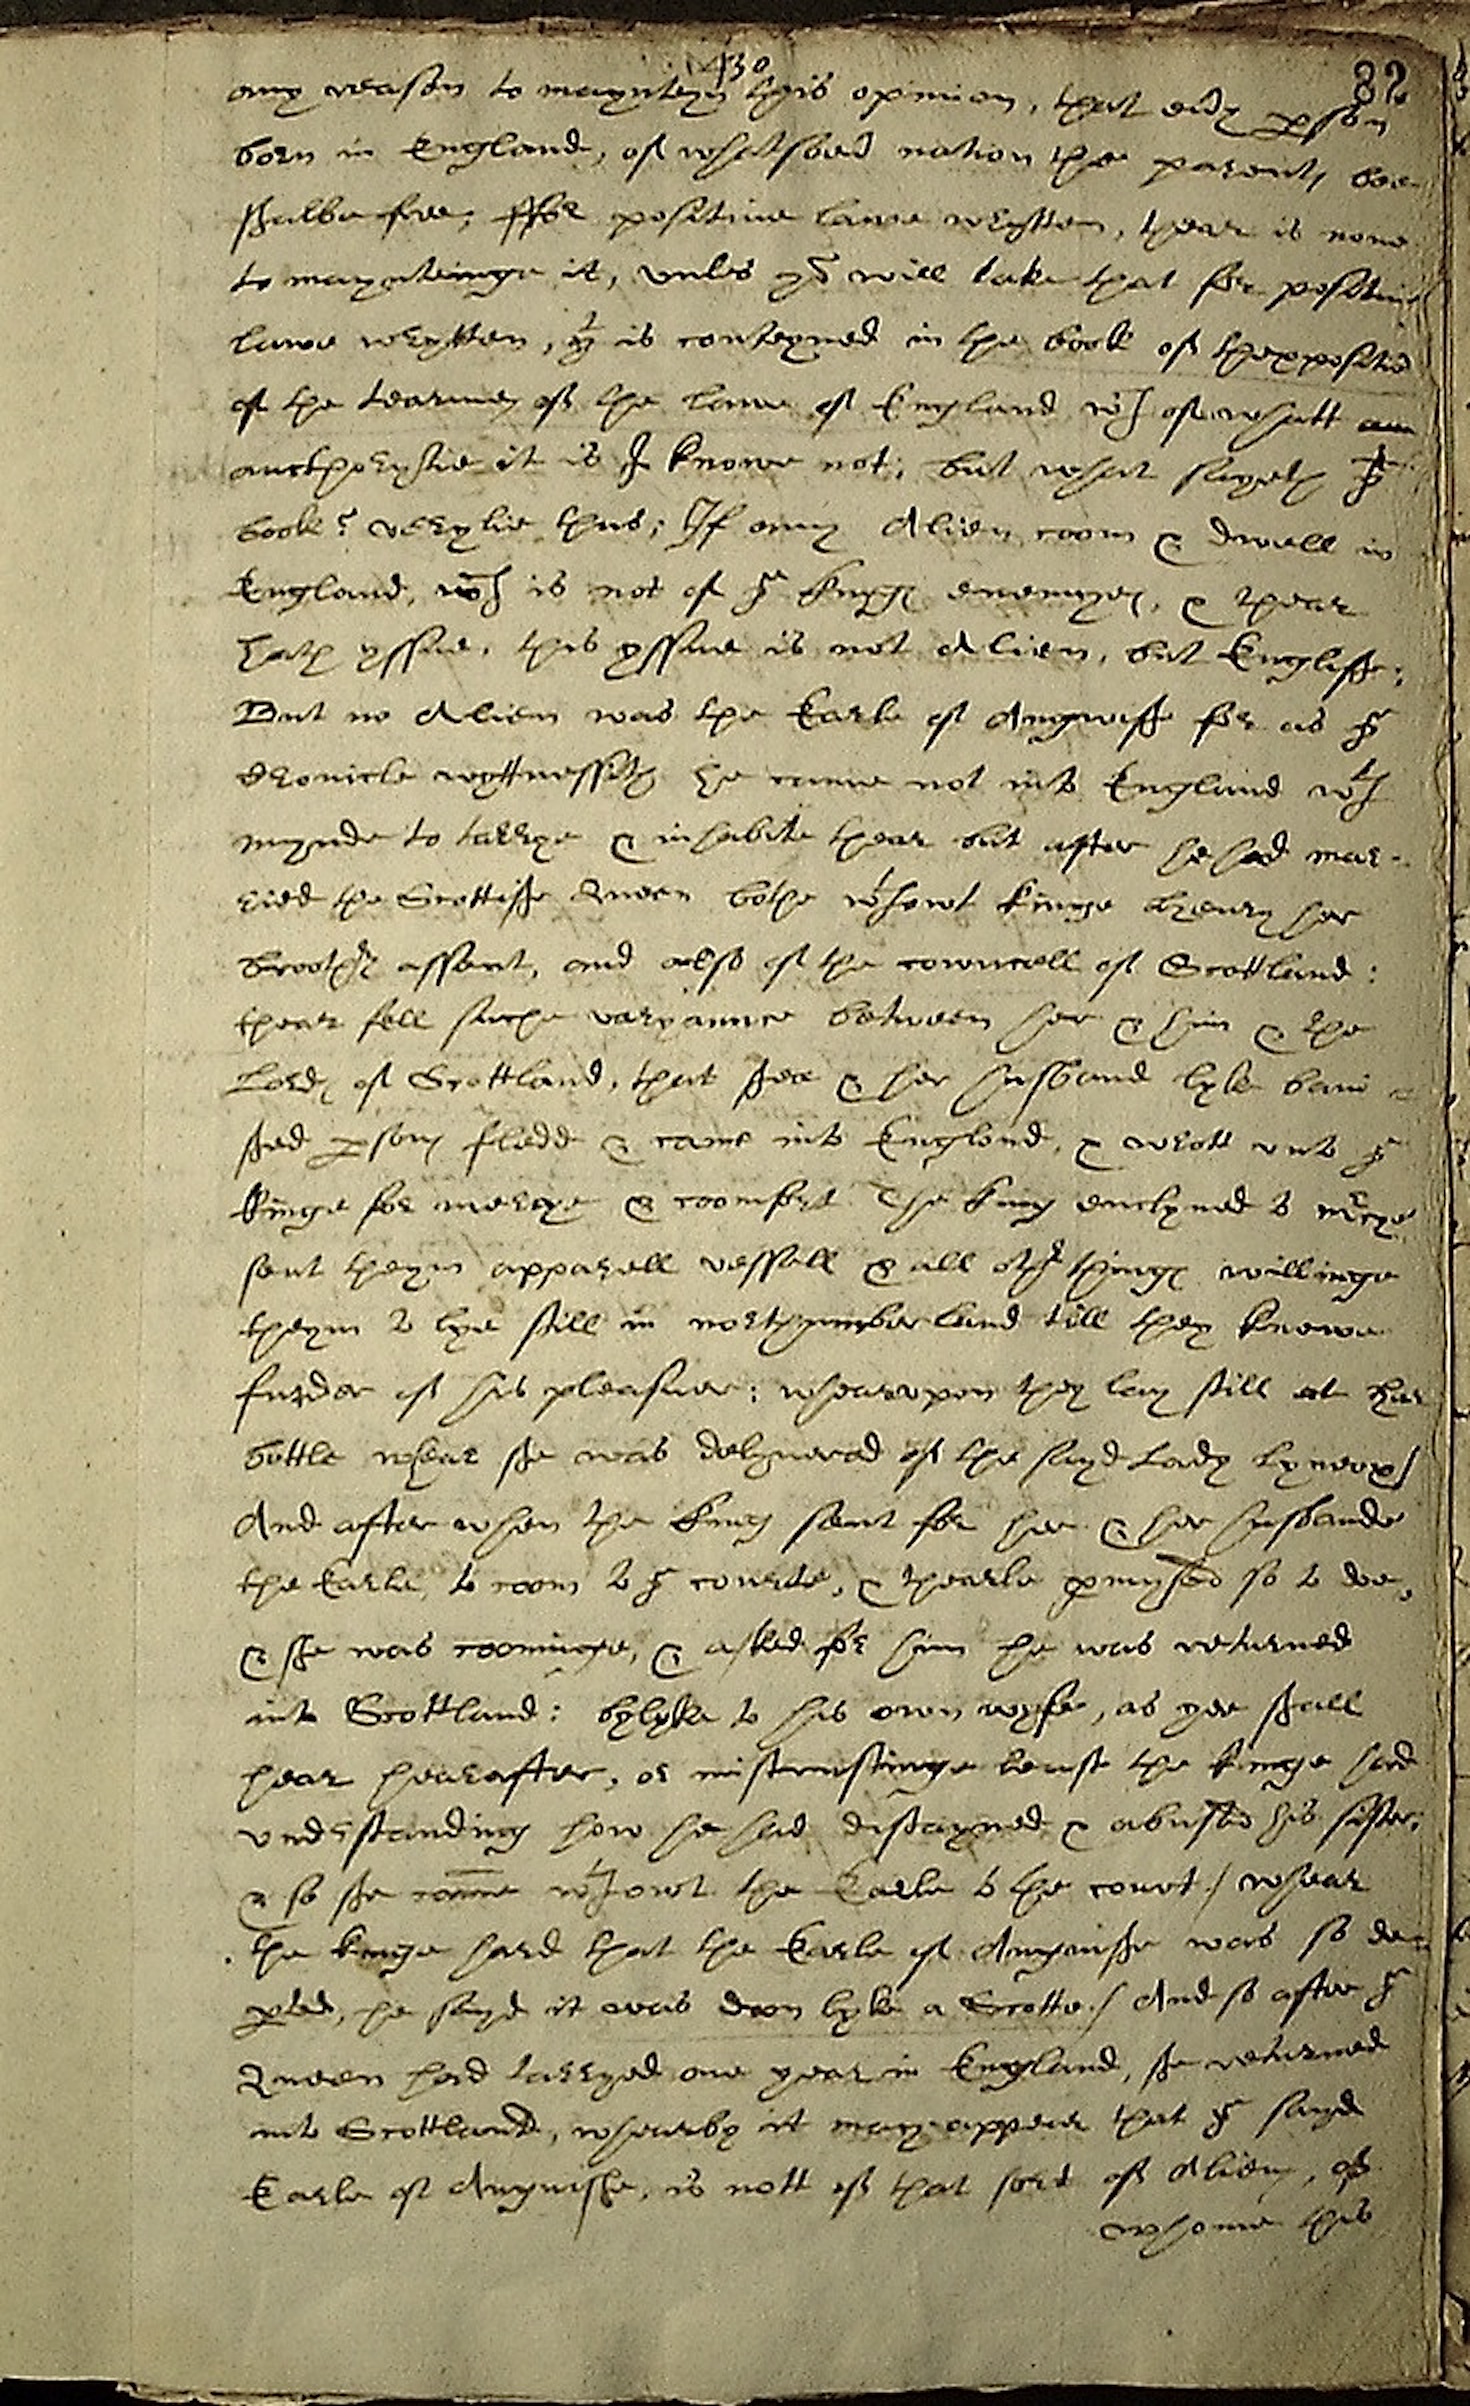 430
82
any reason to maynteyn this opinion, that eu̅y p̱son
born in England, of whatsoeu̅ nation the parent͛ bee
shalbe free; ffor positiue lawe wrytten, thear is none
to maynteinge it, vnles yo͛ will take that for positiue
lawe wrytten, yt is conteyned in the book of thexpositio̅
of the tearmes of the lawe of England wch of whatt
aucthorytie it is I knowe not; but what sayeth ye
book? verylie thus; If any Alien coom & dwell in
England, wch is not of ye kyngs enemyes, & thear
hath yssue, this yssue is not Alien, but Englisshe;
But no Alien was the Earle of Angwisshe for as ye
cronicle wyttnessith he came not into England wth
mynde to tarrye & inhabite thear but after he had mar-
ried the Scottisshe Queen bothe wthowt kinge Henry her
brothers assent, and also of the cowncell of Scottland:
thear fell suche varyaunce between her & him & the
Lords of Scottland, that shee & her husband lyke bani-
shed p̱sons fledd & came into England, & wrott vnto ye
kinge for mercye & coomfort The king enclyned to m̅cye
sent theym apparell vessell & all othr things willinge
theym to lye still in northumberland till they knowe
furder of his pleasure: whearvpon they lay still at Har
bottle whear she was delyuered of the sayd Lady Lyneox/
And after when the king sent for her & her husbande
the Earle to coom to ye courte, & thearle p̱mysed so to doe,
& she was coominge, & asked for him he was returned
into Scottland: bylyke to his own wyfe, as yee shall
hear hearafter, or mistrustinge least the kinge had
vnderstanding how he had disdayned & abused his sister;
& so she came wthowt the Earle to the court./ whear
the kinge hard that the Earle of Angwisshe was so de-
p̱ted, he sayd it was doon lyke a Scotte./ And so after ye
Queen had tarryed one year in England, she returned
into Scottland, whearby it may appear that ye sayd
Earle of Angwisshe, is nott of that sort of Aliens, of
whome this